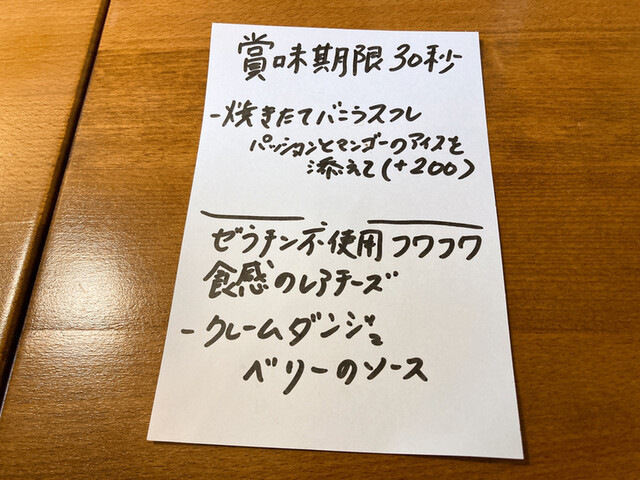 賞味期限30秒
-焼きたてバニラスフレ
パッションとマンゴーのアイスを
添えて(+200)
ゼラチン不使用フワフワ
食感のレアチーズ
-クレームダンジュ
ベリーのソース